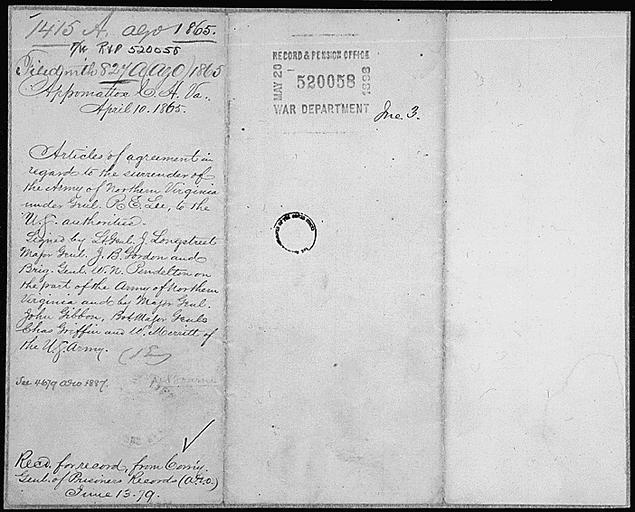 1415 A. ago 1865.
F/W R&P 520058
Filed with 827 A(AGO) 1865
Appomattox C. H. Va.
April 10. 1865.
Articles of agreement in
regard to the surrender of
the Army of Northern Virginia
under Genl. R. E. Lee, to the
U.S. authorities.
Signed by Lt Genl. J. Longstreet
Major Genl. J. B. Gordon and
Brig. Genl. W. N. Pendelton on
the part of the Army of Northern
Virginia and by Major Genl.
John Gibbon, Bvt Major Genls
Chas Griffin and W. Merritt of
the U.S. Army.
See 4679 AGO 1887.
Recd. for record, from Com'y.
Genl. of Prisoners Records (A.G.O.)
June 13-79.
RECORD & PENSION OFFICE
MAY 20 520058 1898
WAR DEPARTMENT
Inc. 3.